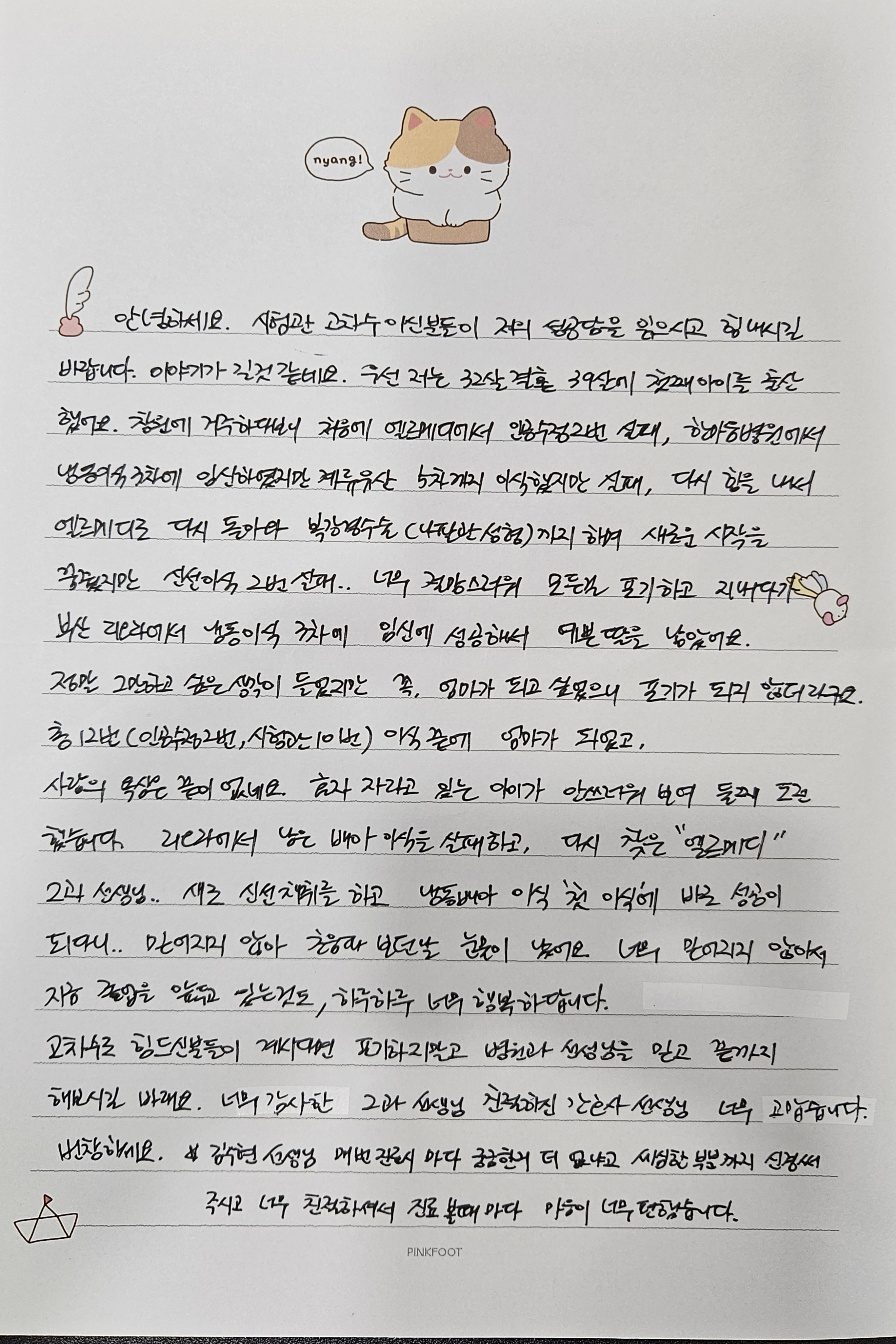 nyang!
안녕하세요. 시험관 고차수이신분들이 저의 성공담을 읽으시고 힘내시길
바랍니다. 이야기가 길것 같네요. 우선 저는 32살 결혼 39살에 첫째아이를 출산
했어요. 창원에 거주하다보니 처음에 엘르메디에서 인공수정2번 실패, 한마음병원에서
냉동이식 3차에 임신하였지만 계류유산 5차까지 이식했지만 실패, 다시 힘을 내서
엘르메디로 다시 돌아와 복강경수술(나팔관성형)까지 하며 새로운 시작을
꿈꿨지만 신선이식 2번 실패.. 너무 절망스러워 모든걸 포기하고 지내다가
부산 리오라에서 냉동이식 3차에 임신에 성공해서 예쁜 딸을 낳았어요.
정말 그만하고 싶은 생각이 들었지만 꼭, 엄마가 되고 싶었으니 포기가 되지 않더라구요.
총 12번(인공수정2번, 시험관10번) 이식 끝에 엄마가 되었고,
사람의 욕심은 끝이 없네요. 혼자 자라고 있는 아이가 안쓰러워 보여 둘째 도전
했습니다. 리오라에서 남은 배아 이식을 실패하고, 다시 찾은 "엘르메디"
2과 선생님.. 새로 신선채취를 하고 냉동배아 이식 '첫 이식'에 바로 성공이
되다니.. 믿어지지 않아 초음파 보던날 눈물이 났어요 너무 믿어지지 않아서
지금 졸업을 앞두고 있는것도, 하루하루 너무 행복하답니다.
고차수로 힘드신분들이 계시다면 포기하지말고 병원과 선생님을 믿고 끝까지
해보시길 바래요. 너무 감사한 2과 선생님 친절하신 간호사 선생님 너무 고맙습니다.
번창하세요. * 김수현 선생님 매번 진료시 마다 궁금한거 더 없냐고 세심한 부분까지 신경써
주시고 너무 친절하셔서 진료 볼때 마다 마음이 너무 편했습니다.
PINKFOOT